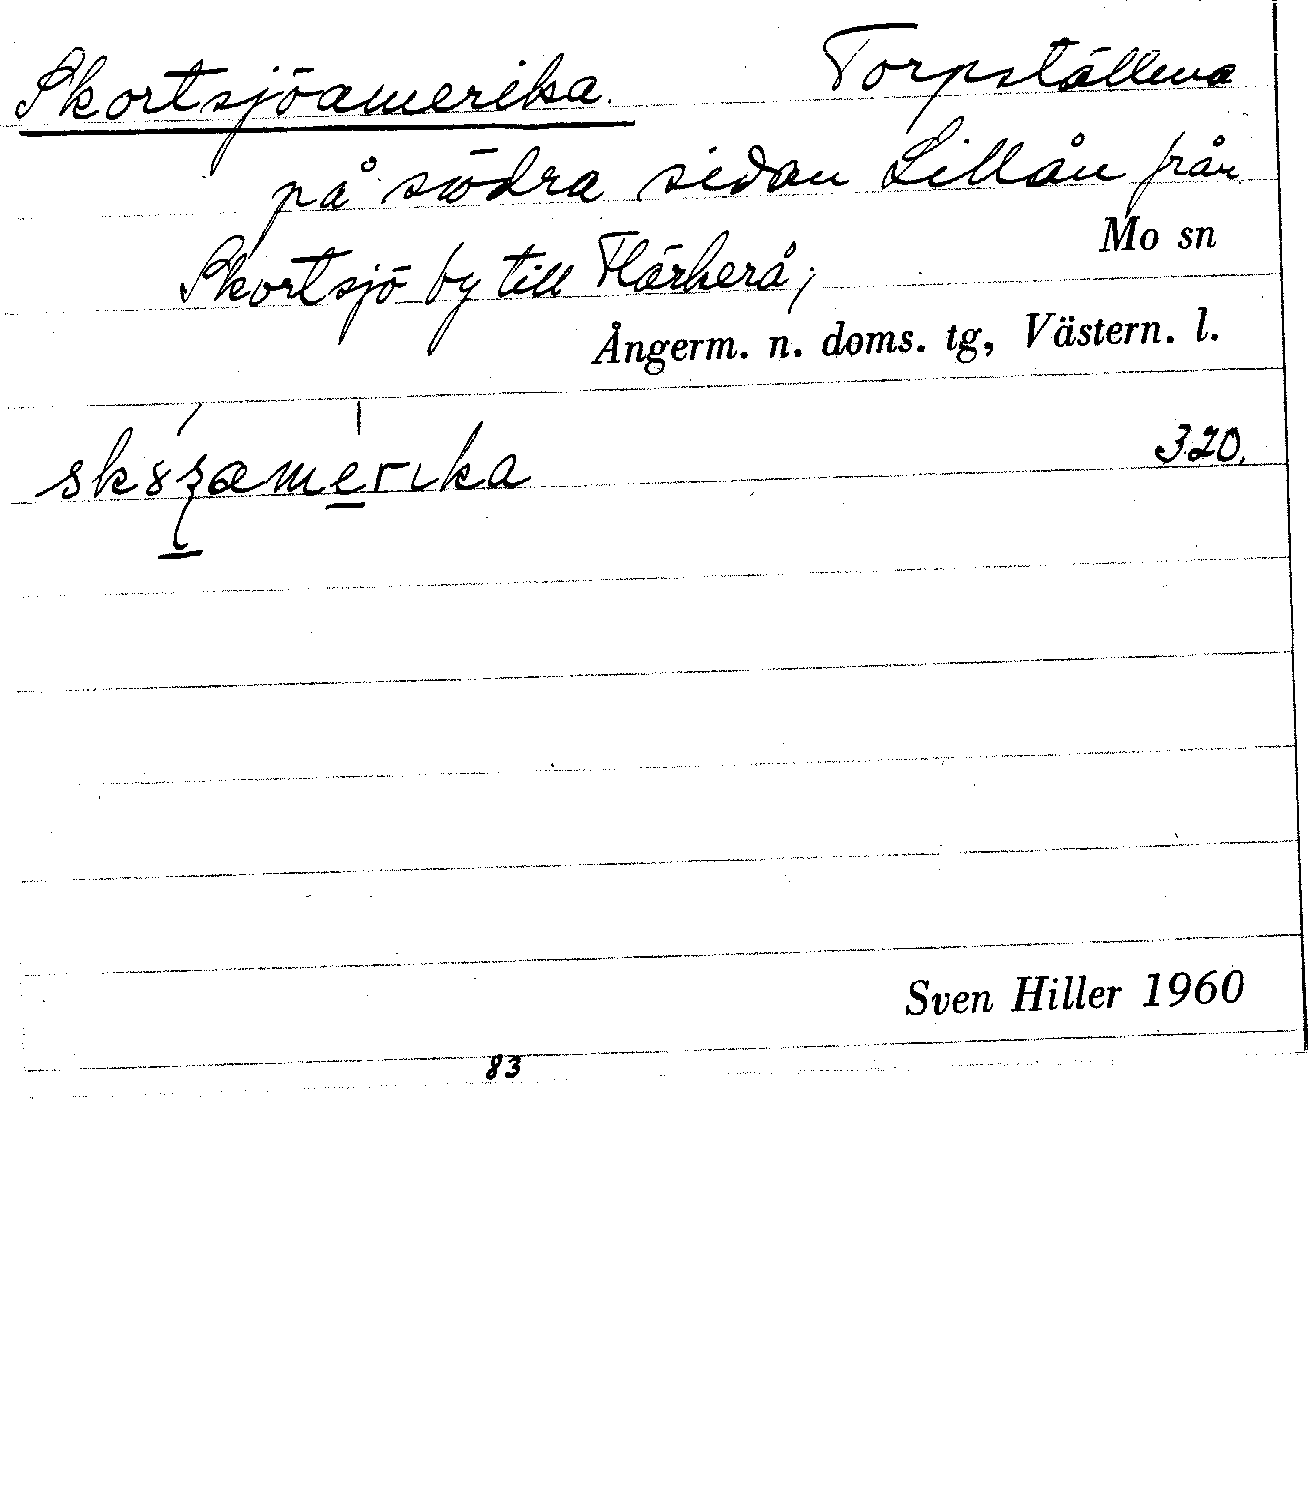 Skortsjöamerika. Torpställena
på södra sidan Lillån från
Mo sn
Skortsjö by till Flärkerå,
Ångerm. n. doms. tg, Västern. l.
320.
Sven Hiller 1960
83